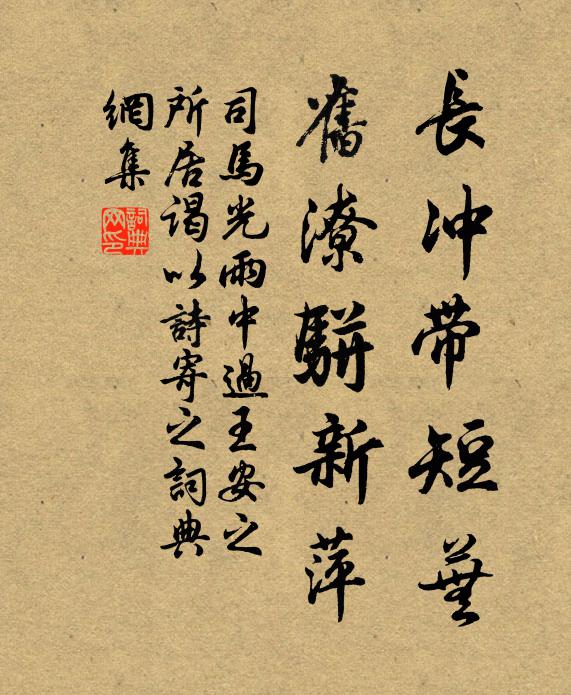 長冲带短蕪
舊潦駢新萍
司馬光雨中過王安之
所居谒以詩寄之詞典
網集
詞典
网印